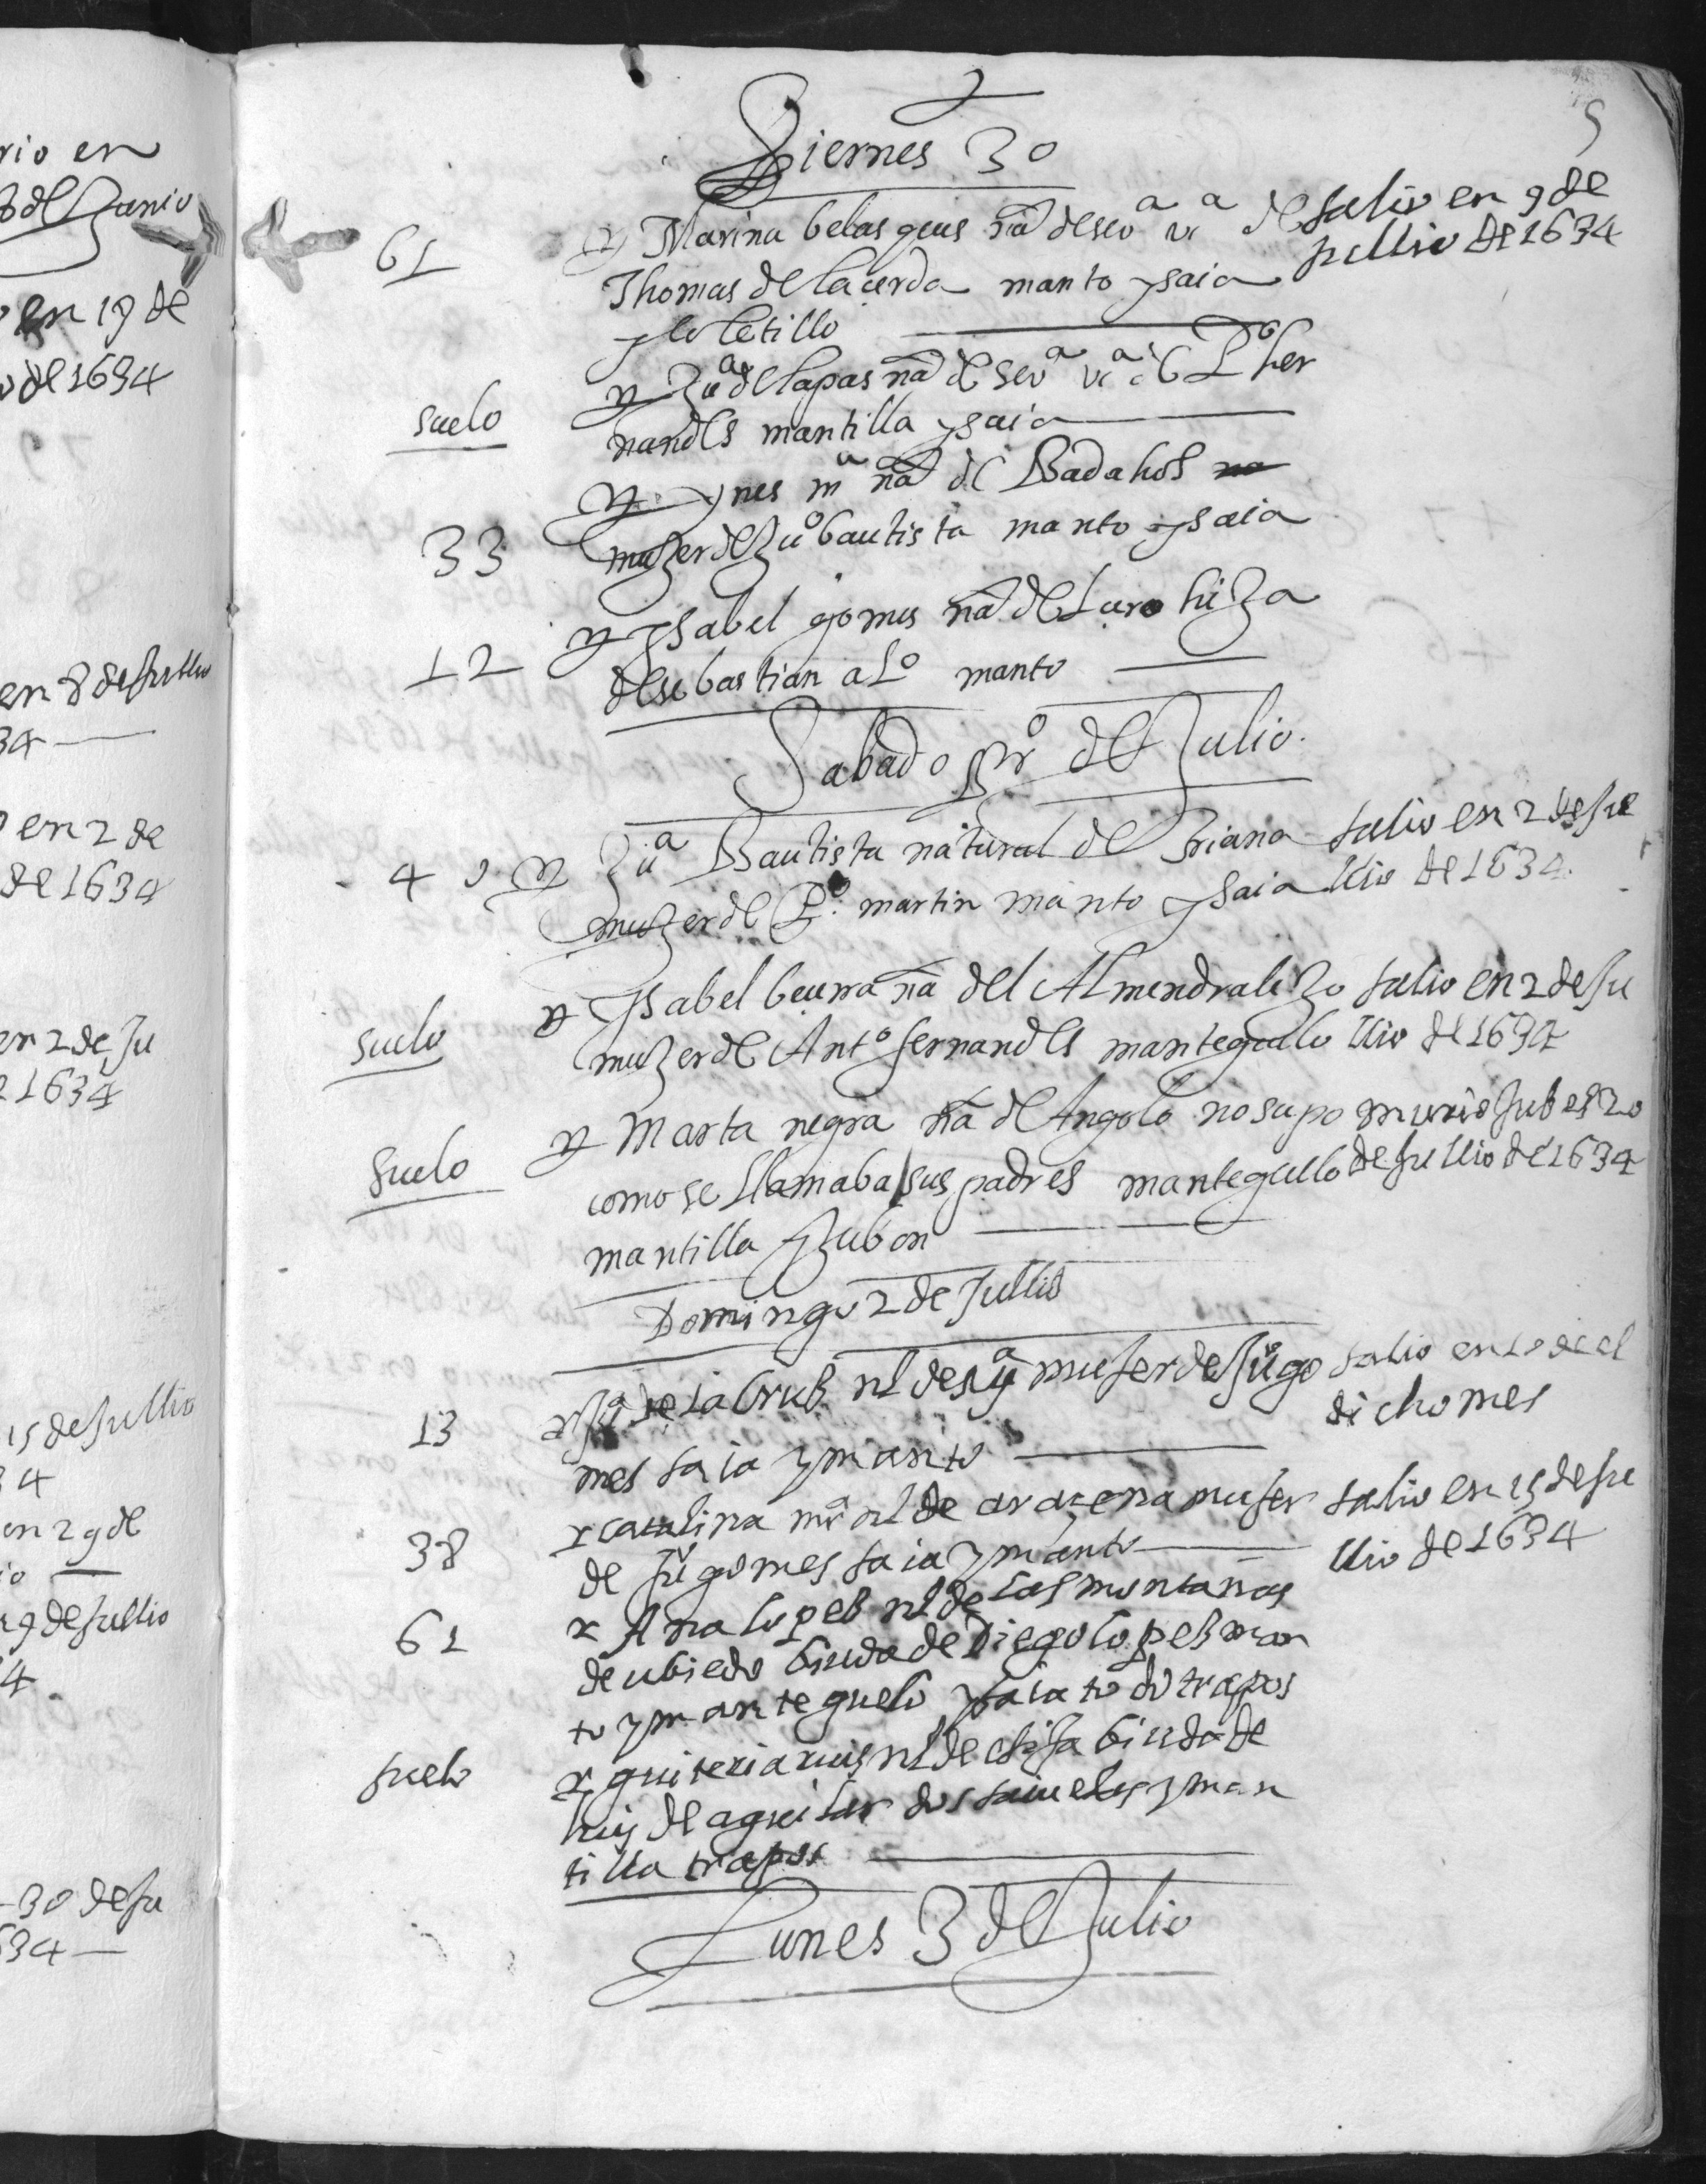 5
Viernes 30
61
Marina belasques nā de sevª vª de
Thomas de la cerda manto y saia
y coletillo
salio en 9 de
jullio de 1634
suelo
Juª de la pas nā de sevª vª de Pº her
nandes mantilla y saia
33
Ynes mª nā de Badahos
muger de Juº bautista manto y saia
12
Ysabel gomes nā de hiza
de sebastian alº manto
Sabado prº de Julio
4
Juª Bautista natural de triana
muzer de Pº martin manto y saia
salio en 2 de ju
llio de 1634
suelo
Ysabel nā del Almendralejo
muzer de Antº fernandes mantequelo
salio en 2 de ju
llio de 1634
suelo
Marta negra nā de Angola no supo
como se llamaba sus padres mantequello
mantilla y jubon
murio jubes 20
de jullio de 1634
Domingo 2 de jullio
13
Juª de la crus nl de muger de juº go
mes saia y manto
salio en 10 de el
dicho mes
38
Catalina mª nl de arazena muger
de juº gomes saia y manto
salio en 15 de ju
llio de 1634
61
Ana lopes nl de las montañas
de ubiedo biuda de Diego lopes man
to y mantequelo y saia todo trapos
suelo
quiteria ruis nl de esija biuda de
luis de aguilar dos saiuelas y man
tilla trapos
Lunes 3 de Julio
rio en
de Junio
en 19 de
de 1634
en 8 de jullio
34
en 2 de
de 1634
en 2 de ju
1634
15 de jullio
34
en 29 de
io
9 de jullio
4
30 de ju
634